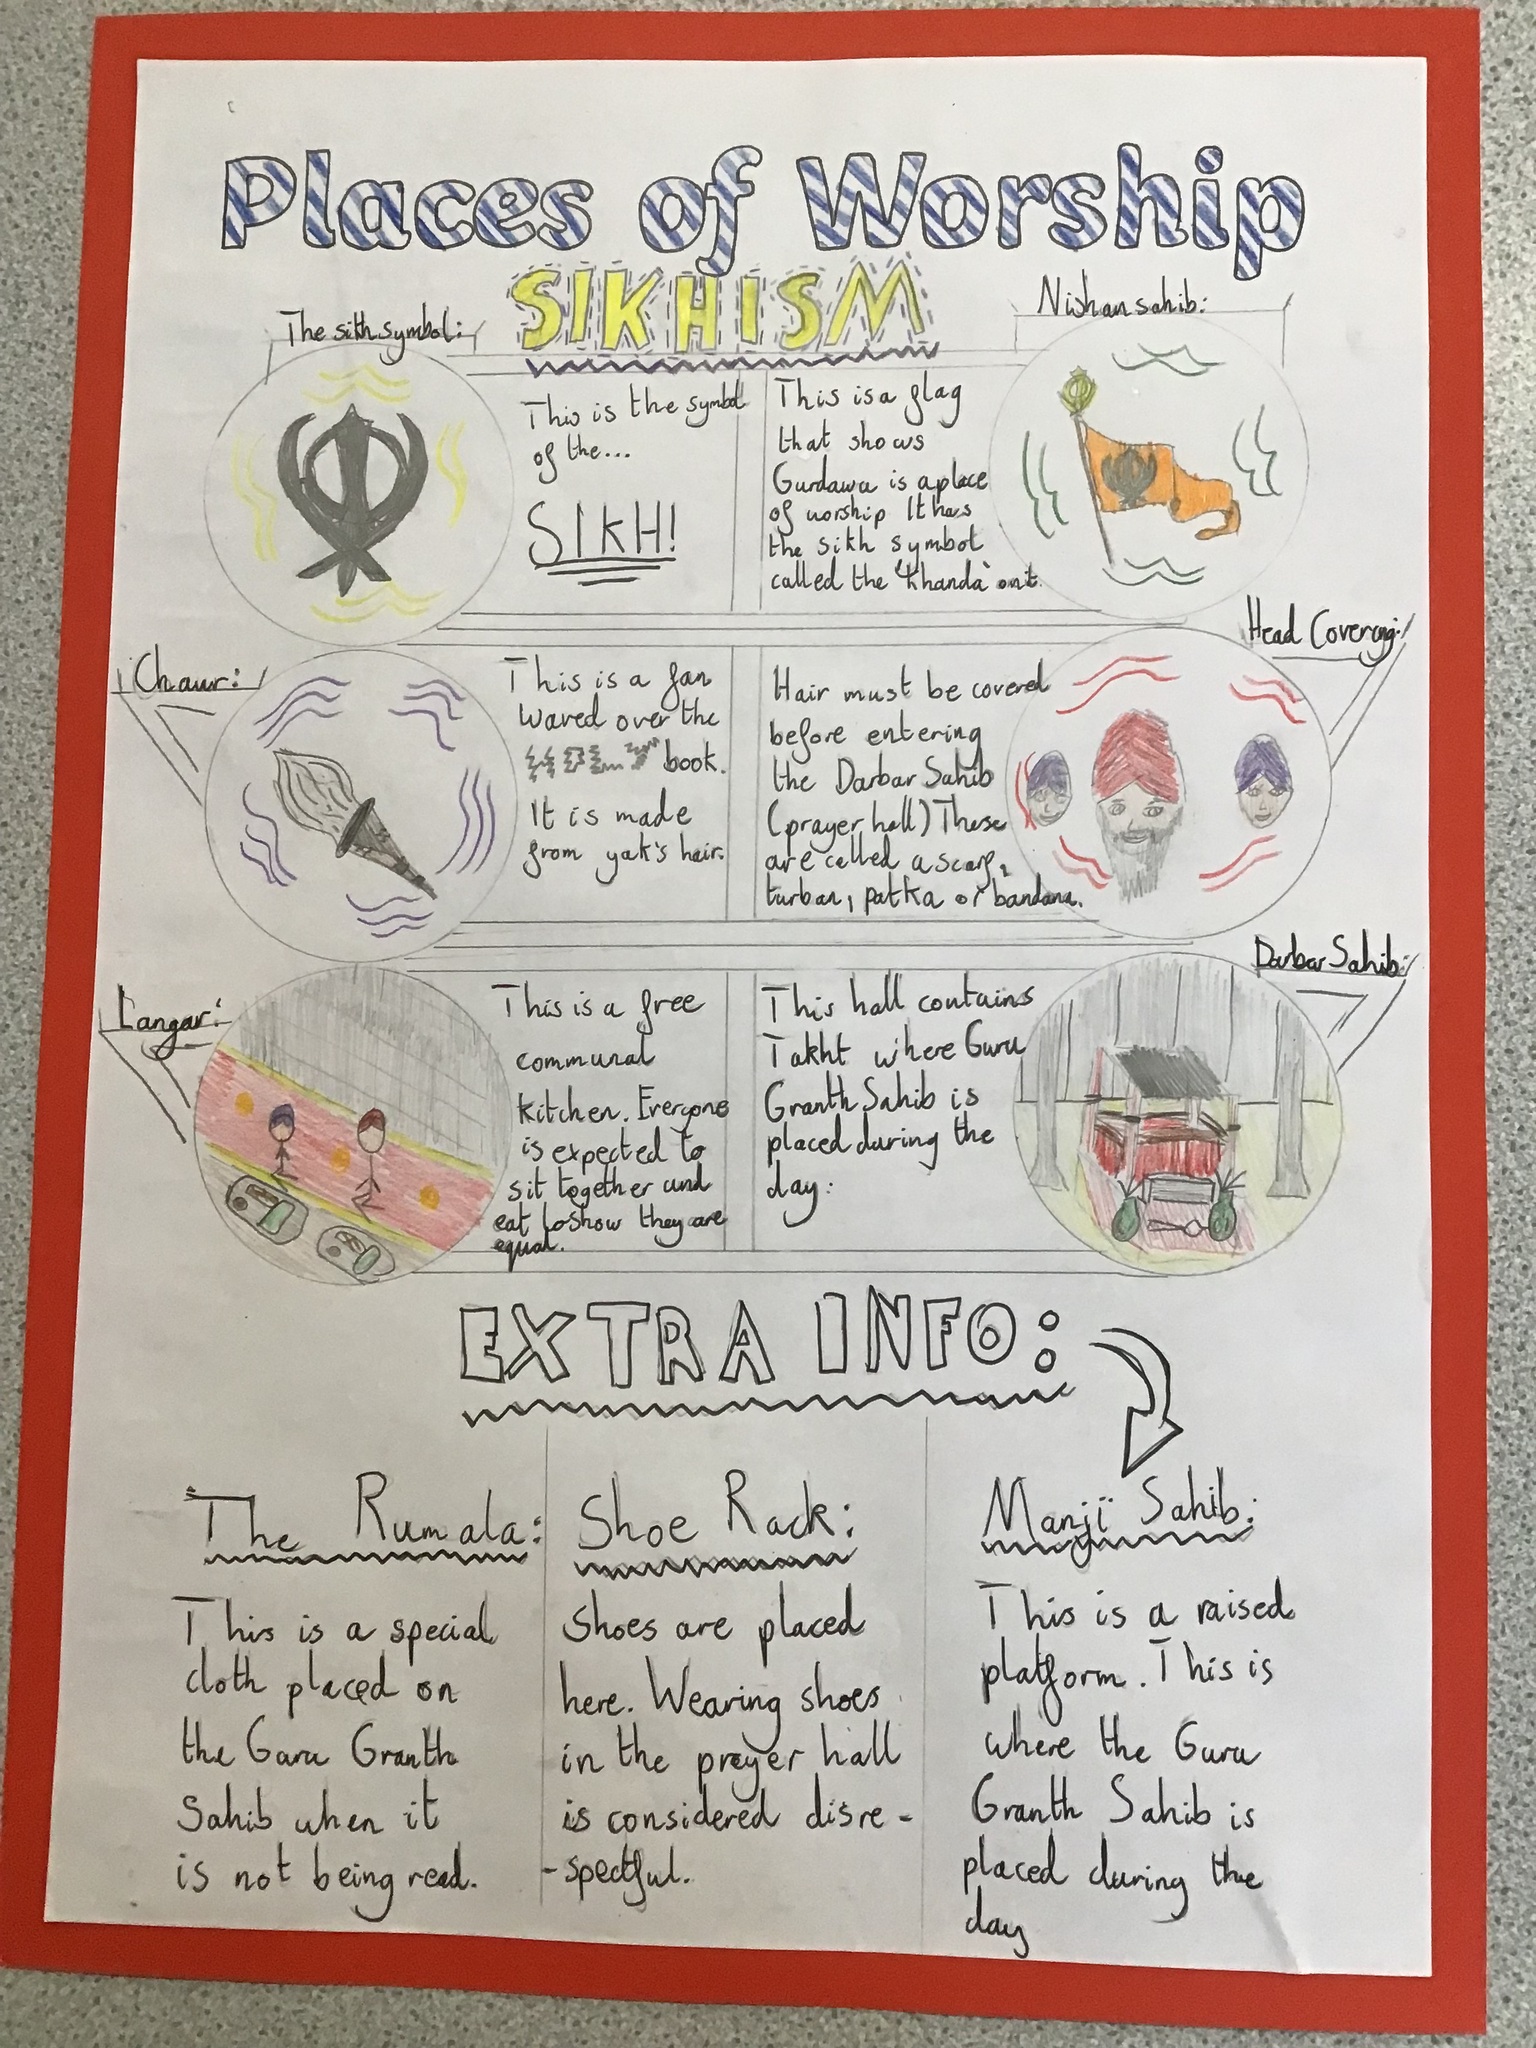 Places of Worship
SIKHISM
The sikh symbol:
This is the symbol
of the...
SIKH!
Nishan sahib:
This is a flag
that shows
Gurdawa is a place
of worship It has
the sikh symbol
called the 'Khanda' on it.
Chaur:
This is a fan
waved over the
book.
It is made
from yak's hair.
Head Covering:
Hair must be covered
before entering
the Darbar Sahib
(prayer hall) These
are called a scarf,
turban, patka or bandana.
Langar:
This is a free
communal
kitchen. Everyone
is expected to
sit together and
eat to show they are
equal.
Darbar Sahib:
This hall contains
Takht where Guru
Granth Sahib is
placed during the
day.
EXTRA INFO:
The Rumala:
This is a special
cloth placed on
the Guru Granth
Sahib when it
is not being read.
Shoe Rack:
Shoes are placed
here. Wearing shoes
in the prayer hall
is considered disre-
-spectful.
Manji Sahib:
This is a raised
platform. This is
where the Guru
Granth Sahib is
placed during the
day